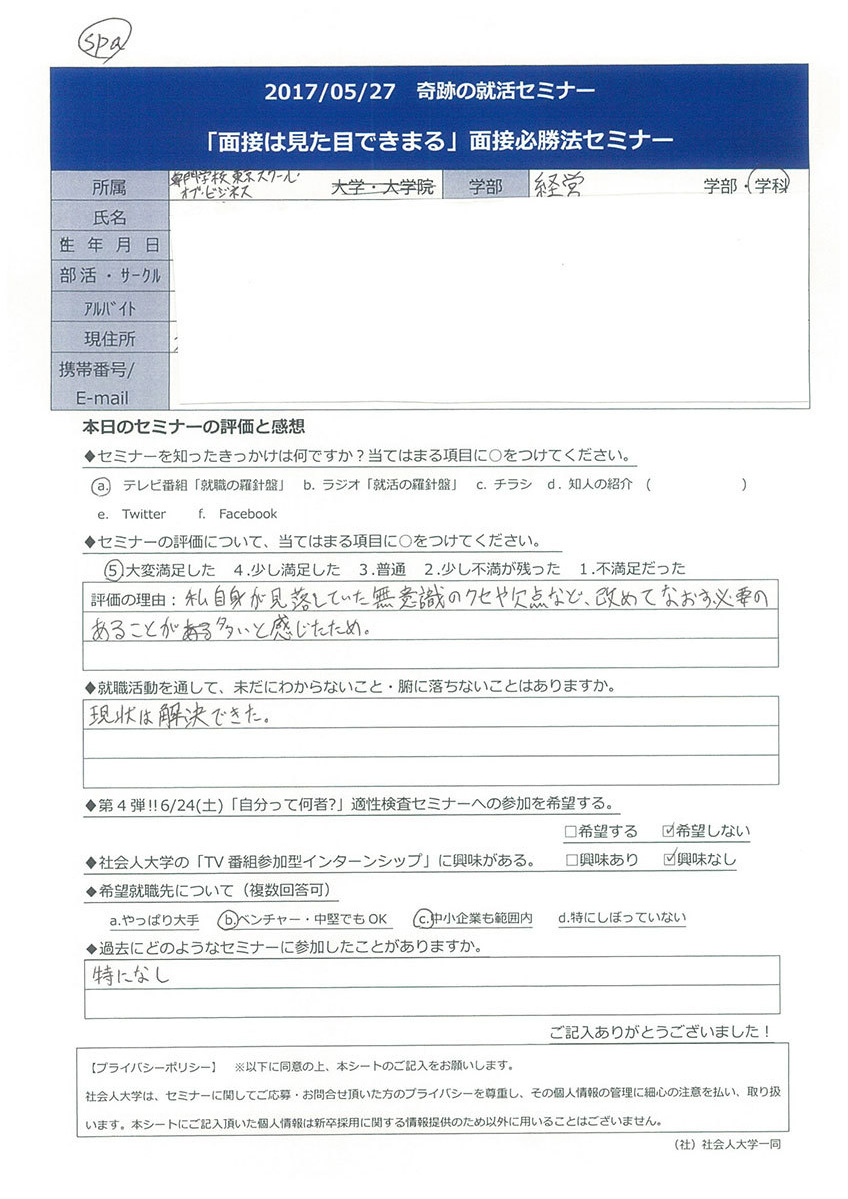 spa
2017/05/27 奇跡の就活セミナー
「面接は見た目できまる」面接必勝法セミナー
所属 専門学校東京スクール・オブ・ビジネス 大学・大学院 学部 経営 学部・学科
氏名
生年月日
部活・サークル
アルバイト
現住所
携帯番号/
E-mail
本日のセミナーの評価と感想
◆セミナーを知ったきっかけは何ですか？当てはまる項目に○をつけてください。
a. テレビ番組「就職の羅針盤」 b. ラジオ「就活の羅針盤」 c. チラシ d. 知人の紹介 ( )
e. Twitter f. Facebook
◆セミナーの評価について、当てはまる項目に○をつけてください。
5大変満足した 4.少し満足した 3.普通 2.少し不満が残った 1.不満足だった
評価の理由：私自身が見落していた無意識のクセや欠点など、改めてなおす必要の
あることがある多いと感じたため。
◆就職活動を通して、未だにわからないこと・腑に落ちないことはありますか。
現状は解決できた。
◆第4弾!!6/24(土)「自分って何者?」適性検査セミナーへの参加を希望する。
□希望する ☑希望しない
◆社会人大学の「TV番組参加型インターンシップ」に興味がある。 □興味あり ☑興味なし
◆希望就職先について（複数回答可）
a.やっぱり大手 b.ベンチャー・中堅でもOK c.中小企業も範囲内 d.特にしぼっていない
◆過去にどのようなセミナーに参加したことがありますか。
特になし
ご記入ありがとうございました！
【プライバシーポリシー】 ※以下に同意の上、本シートのご記入をお願いします。
社会人大学は、セミナーに関してご応募・お問合せ頂いた方のプライバシーを尊重し、その個人情報の管理に細心の注意を払い、取り扱
います。本シートにご記入頂いた個人情報は新卒採用に関する情報提供のため以外に用いることはございません。
（社）社会人大学一同